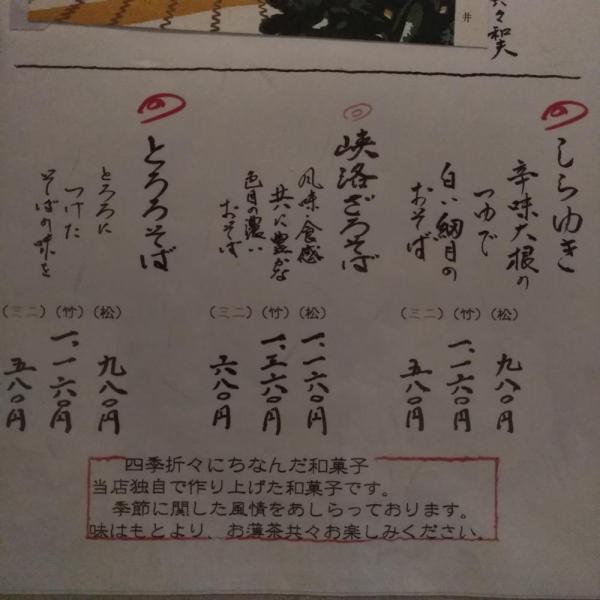 井
共々和天
しらゆき
辛味大根の
つゆで
白い細目の
おそば
(松)
(竹)
(ミニ)
九八〇円
一、一六〇円
五八〇円
峡洛ざるそば
風味・食感
共に豊かな
色目の濃い
おそば
(松)
(竹)
(ミニ)
一、一六〇円
一、三六〇円
六八〇円
とろろそば
とろろに
つけた
そばの味を
(松)
(竹)
(ミニ)
九八〇円
一、一六〇円
五八〇円
四季折々にちなんだ和菓子
当店独自で作り上げた和菓子です。
季節に関した風情をあしらっております。
味はもとより、お薄茶共々お楽しみください。